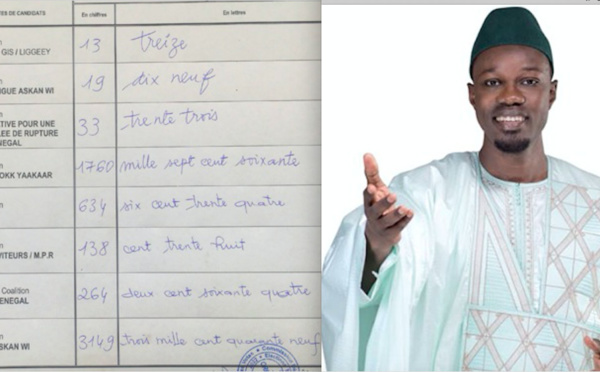 TES DE CANDIDATS En chiffres En lettres
n
GIS / LIGGEEY 13 treize
n
GUE ASKAN WI 19 dix neuf
n
ATIVE POUR UNE
LEE DE RUPTURE
NEGAL 33 trente trois
n
OKK YAAKAAR 1760 mille sept cent soixante
n 634 six cent trente quatre
n
VITEURS / M.P.R 138 cent trente huit
Coalition
ENEGAL 264 deux cent soixante quatre
n
SKAN WI 3149 trois mille cent quarante neuf